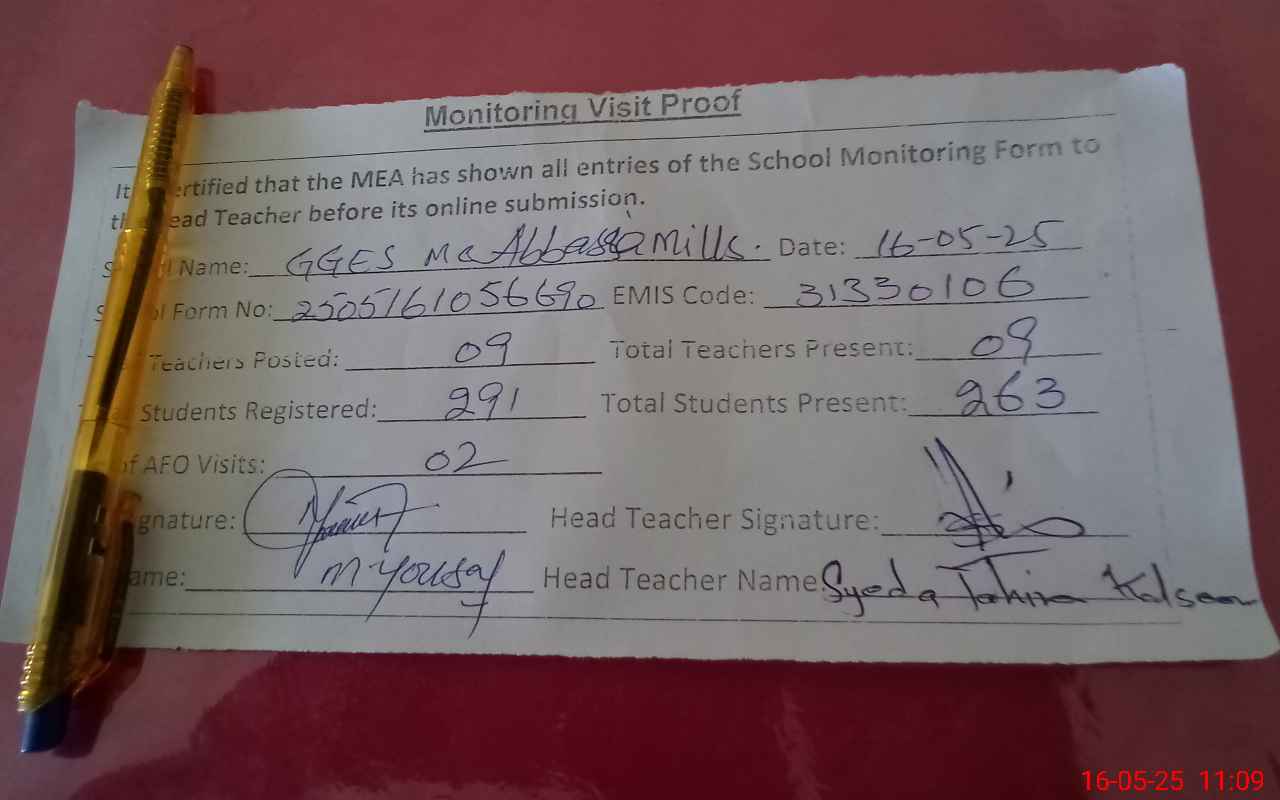 Monitoring Visit Proof
It ertified that the MEA has shown all entries of the School Monitoring Form to
th ead Teacher before its online submission.
S l Name: GGES MC Abbassa Mills. Date: 16-05-25
S l Form No: 2505161056690 EMIS Code: 31330106
Teachers Posted: 09 Total Teachers Present: 09
Students Registered: 291 Total Students Present: 263
of AFO Visits: 02
gnature: Head Teacher Signature:
ame: M-Yousaf Head Teacher Name: Syeda Tahira Kalsoom
16-05-25 11:09